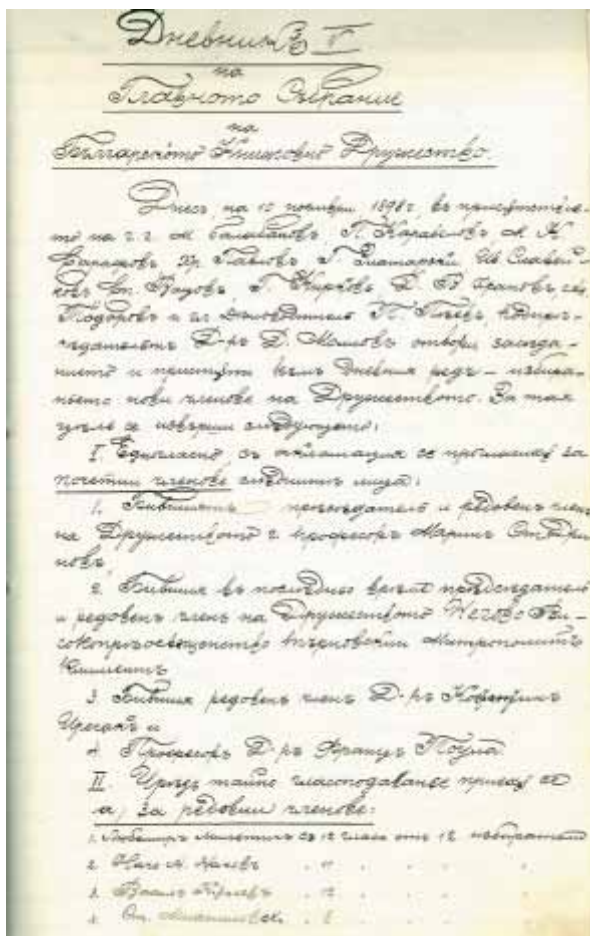 Дневникъ V
на
Главното Събрание
на
Българското Книжовно Дружество.
Днесъ, на 15 ноемврий 1898 г. въ присѫтствие-
то на г. г. М. Балабановъ, П. Каравеловъ, М. К.
Сарафовъ, Хр. Павловъ, Г. Златарски, Ив. Славей-
ковъ, Ив. Вазовъ, Г. Кирковъ, Д. В. Храновъ,
Тодоровъ и дѣловодитель П. Пѣевъ, подпрѣ-
дседательтъ Д-ръ Д. Молловъ отвори заседа-
нието и пристѫпи къмъ дневния редъ – избира-
ньето нови членове на Дружеството. За тая
цѣль се извърши следующето:
I. Единогласно, съ акламация се провъзгласиха за
почетни членове следните лица:
1. Бившиятъ председатель и редовенъ членъ
на Дружеството г. професоръ Маринъ Ст. Дри-
новъ
2. Бивший въ последно време председатель
и редовенъ членъ на Дружеството Негово Ви-
сокопрѣосвещенство Търновский Митрополитъ
Климентъ
3. Бивший редовенъ членъ Д-ръ Константинъ
Иречекъ и
4. Професоръ Д-ръ Францъ
II. Чрѣзъ тайно гласоподаванье приеха се
а, за редовни членове:
1. Любомиръ Милетичъ съ 12 гласа отъ 12 избиратели
2.
3. Василъ
4. Ст.